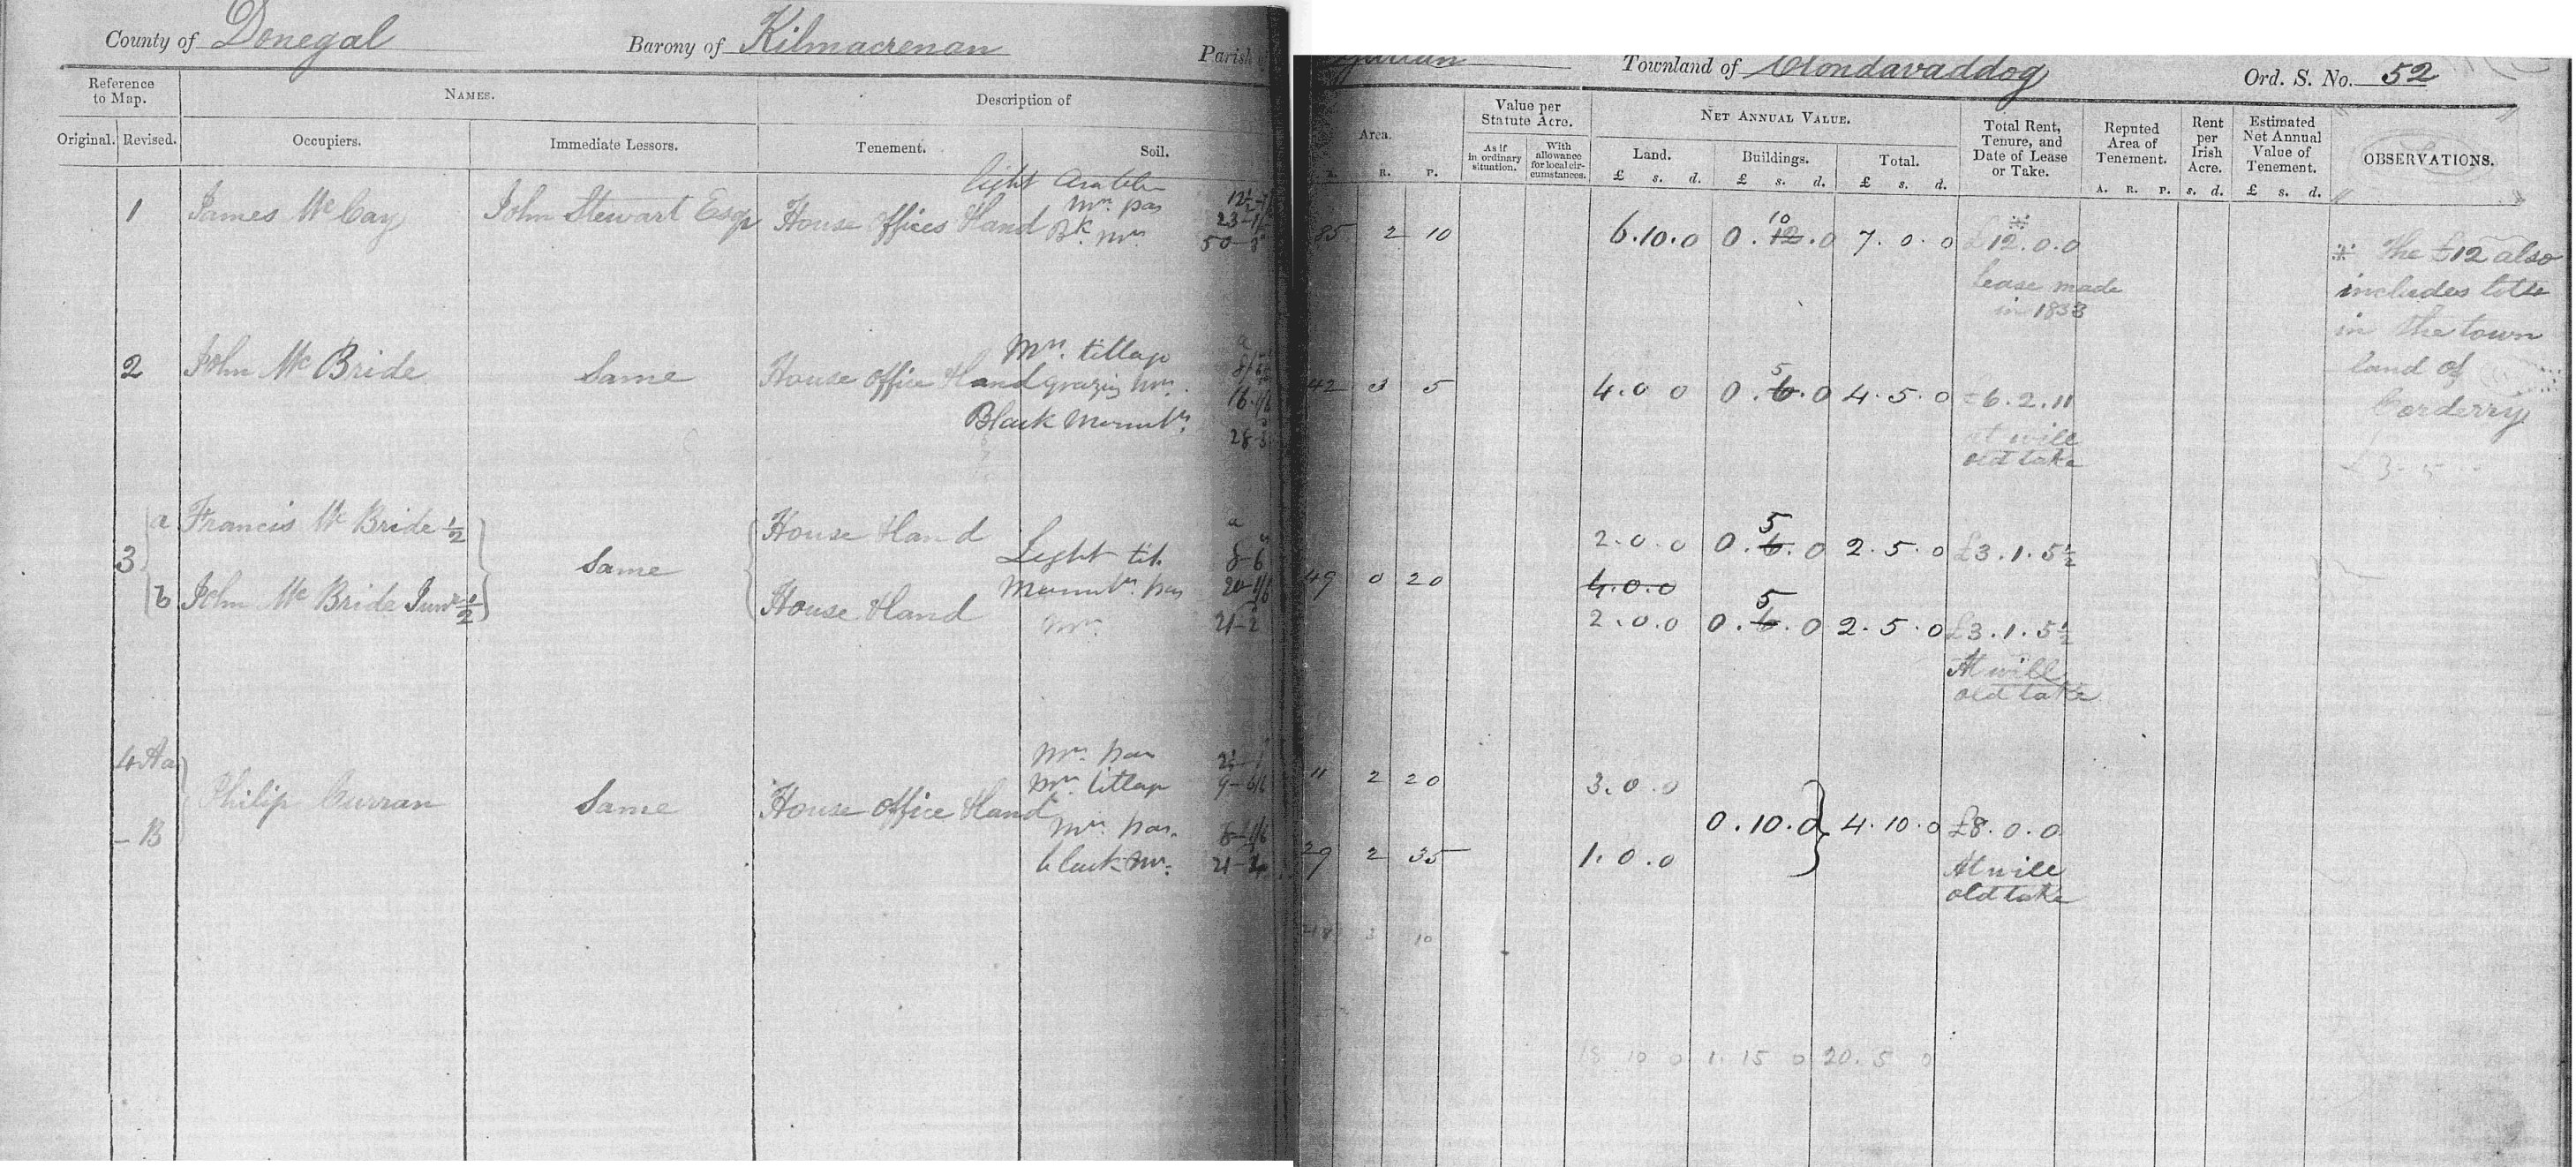 County of Donegal Barony of Kilmacrenan Parish
Townland of Clondavaddog Ord. S. No. 52
Reference to Map.
NAMES.
Description of
Area.
Value per Statute Acre.
NET ANNUAL VALUE.
Total Rent, Tenure, and Date of Lease or Take.
Reputed Area of Tenement.
Rent per Irish Acre.
Estimated Net Annual Value of Tenement.
OBSERVATIONS.
Original. Revised. Occupiers. Immediate Lessors. Tenement. Soil.
As if in ordinary situation. With allowance for local circumstances.
Land. Buildings. Total.
R. P. £ s. d. £ s. d. £ s. d. A. R. P. s. d. £ s. d.
light Arable
Mn. pas
1 James McCay John Stewart Esqr House offices & land Bk. Mn. 35 2 10 6.10.0 0.12.0 7.0.0 £12.0.0
10
Lease made
in 1833
※ The £12 also
includes
in the town
land of
Corderry
Mn. tillage
2 John McBride Same House office & land grazing Mn. 42 3 5 4.0.0 0.6.0 4.5.0 £6.2.11
5
Black Mount.
at will
old take
3 a Francis McBride ½ Same House & land 2.0.0 0.6.0 2.5.0 £3.1.5½
5
Light til. 8-6
Mountn. pas 20-1/6 49 0 20 4.0.0
b John McBride Junr ½ House & land 2.0.0 0.6.0 2.5.0 £3.1.5½
5
Mn. 21-2
At will
old take
4 A a Mn. pas
Mn. tillage 11 2 20 3.0.0
Philip Curran Same House office & land 0.10.0 4.10.0 £8.0.0
- B Mn. pas.
black Mn. 29 2 35 1.0.0
At will
old take
218 3 10
18 10 0 1.15 0 20.5 0